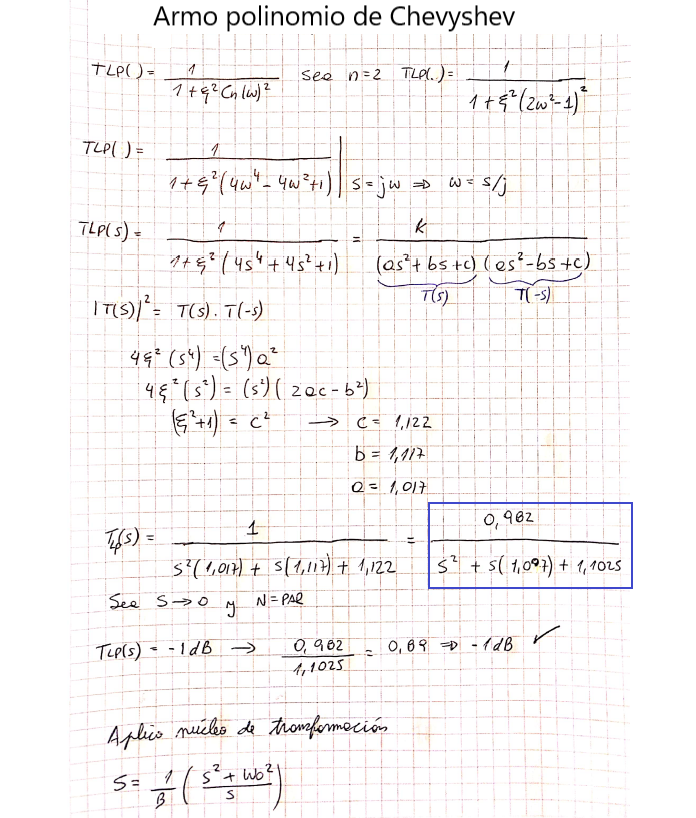 Armo polinomio de Chevyshev
TLP( ) = 1 / (1 + ξ² Cn(w)²)   See n=2   TLP(.) = 1 / (1 + ξ² (2w²-1)²)
TLP( ) = 1 / (1 + ξ² (4w⁴ - 4w² + 1)) | s = jw ⇒ w = s/j
TLP(s) = 1 / (1 + ξ² (4s⁴ + 4s² + 1)) = K / ((as² + bs + c) (as² - bs + c))
T(s)   T(-s)
|T(s)|² = T(s) . T(-s)
4ξ² (s⁴) = (s⁴) a²
4ξ² (s²) = (s²) (2ac - b²)
(ξ²+1) = c² → c = 1,122
b = 1,117
a = 1,017
TLP(s) = 1 / (s²(1,017) + s(1,117) + 1,122) = 0,982 / (s² + s(1,097) + 1,1025)
See s→0 y N=PAR
TLP(s) = -1dB → 0,982 / 1,1025 = 0,89 ⇒ -1dB ✓
Aplico núcleo de transformación
S = 1/B ( (s² + Wo²) / s )